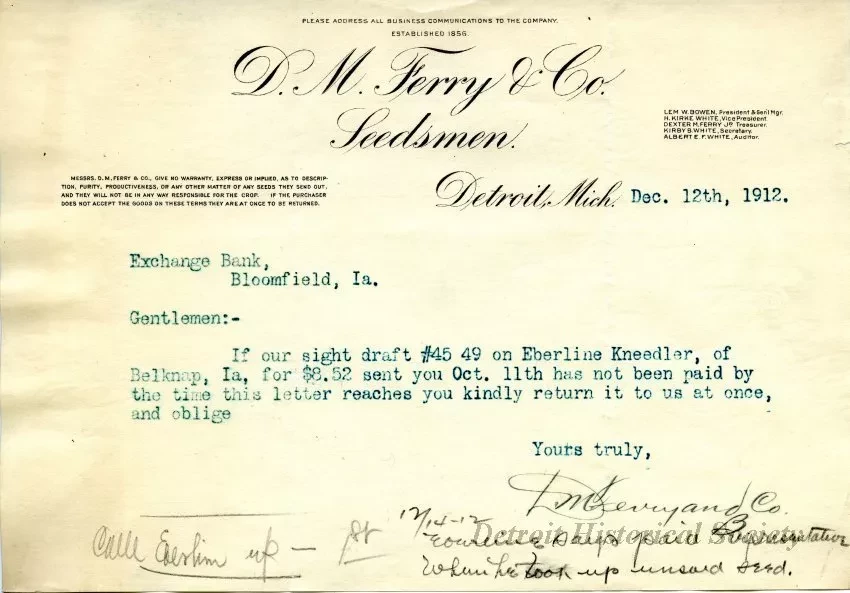 PLEASE ADDRESS ALL BUSINESS COMMUNICATIONS TO THE COMPANY.
ESTABLISHED 1856.
D. M. Ferry & Co.
Seedsmen.
LEM W. BOWEN, President & Gen'l Mgr.
H. KIRKE WHITE, Vice President
DEXTER M. FERRY Jr. Treasurer.
KIRBY B. WHITE, Secretary.
ALBERT E. F. WHITE, Auditor.
MESSRS. D. M. FERRY & CO., GIVE NO WARRANTY, EXPRESS OR IMPLIED, AS TO DESCRIP-
TION, PURITY, PRODUCTIVENESS, OR ANY OTHER MATTER OF ANY SEEDS THEY SEND OUT,
AND THEY WILL NOT BE IN ANY WAY RESPONSIBLE FOR THE CROP. IF THE PURCHASER
DOES NOT ACCEPT THE GOODS ON THESE TERMS THEY ARE AT ONCE TO BE RETURNED.
Detroit, Mich. Dec. 12th, 1912.
Exchange Bank,
Bloomfield, Ia.
Gentlemen:-
If our sight draft #45 49 on Eberline Kneedler, of
Belknap, Ia, for $8.52 sent you Oct. 11th has not been paid by
the time this letter reaches you kindly return it to us at once,
and oblige
Yours truly,
D M Ferry and Co.
Call up —
12/14-12
says paid Representative
When he took up unsold seed.
Detroit Historical Society